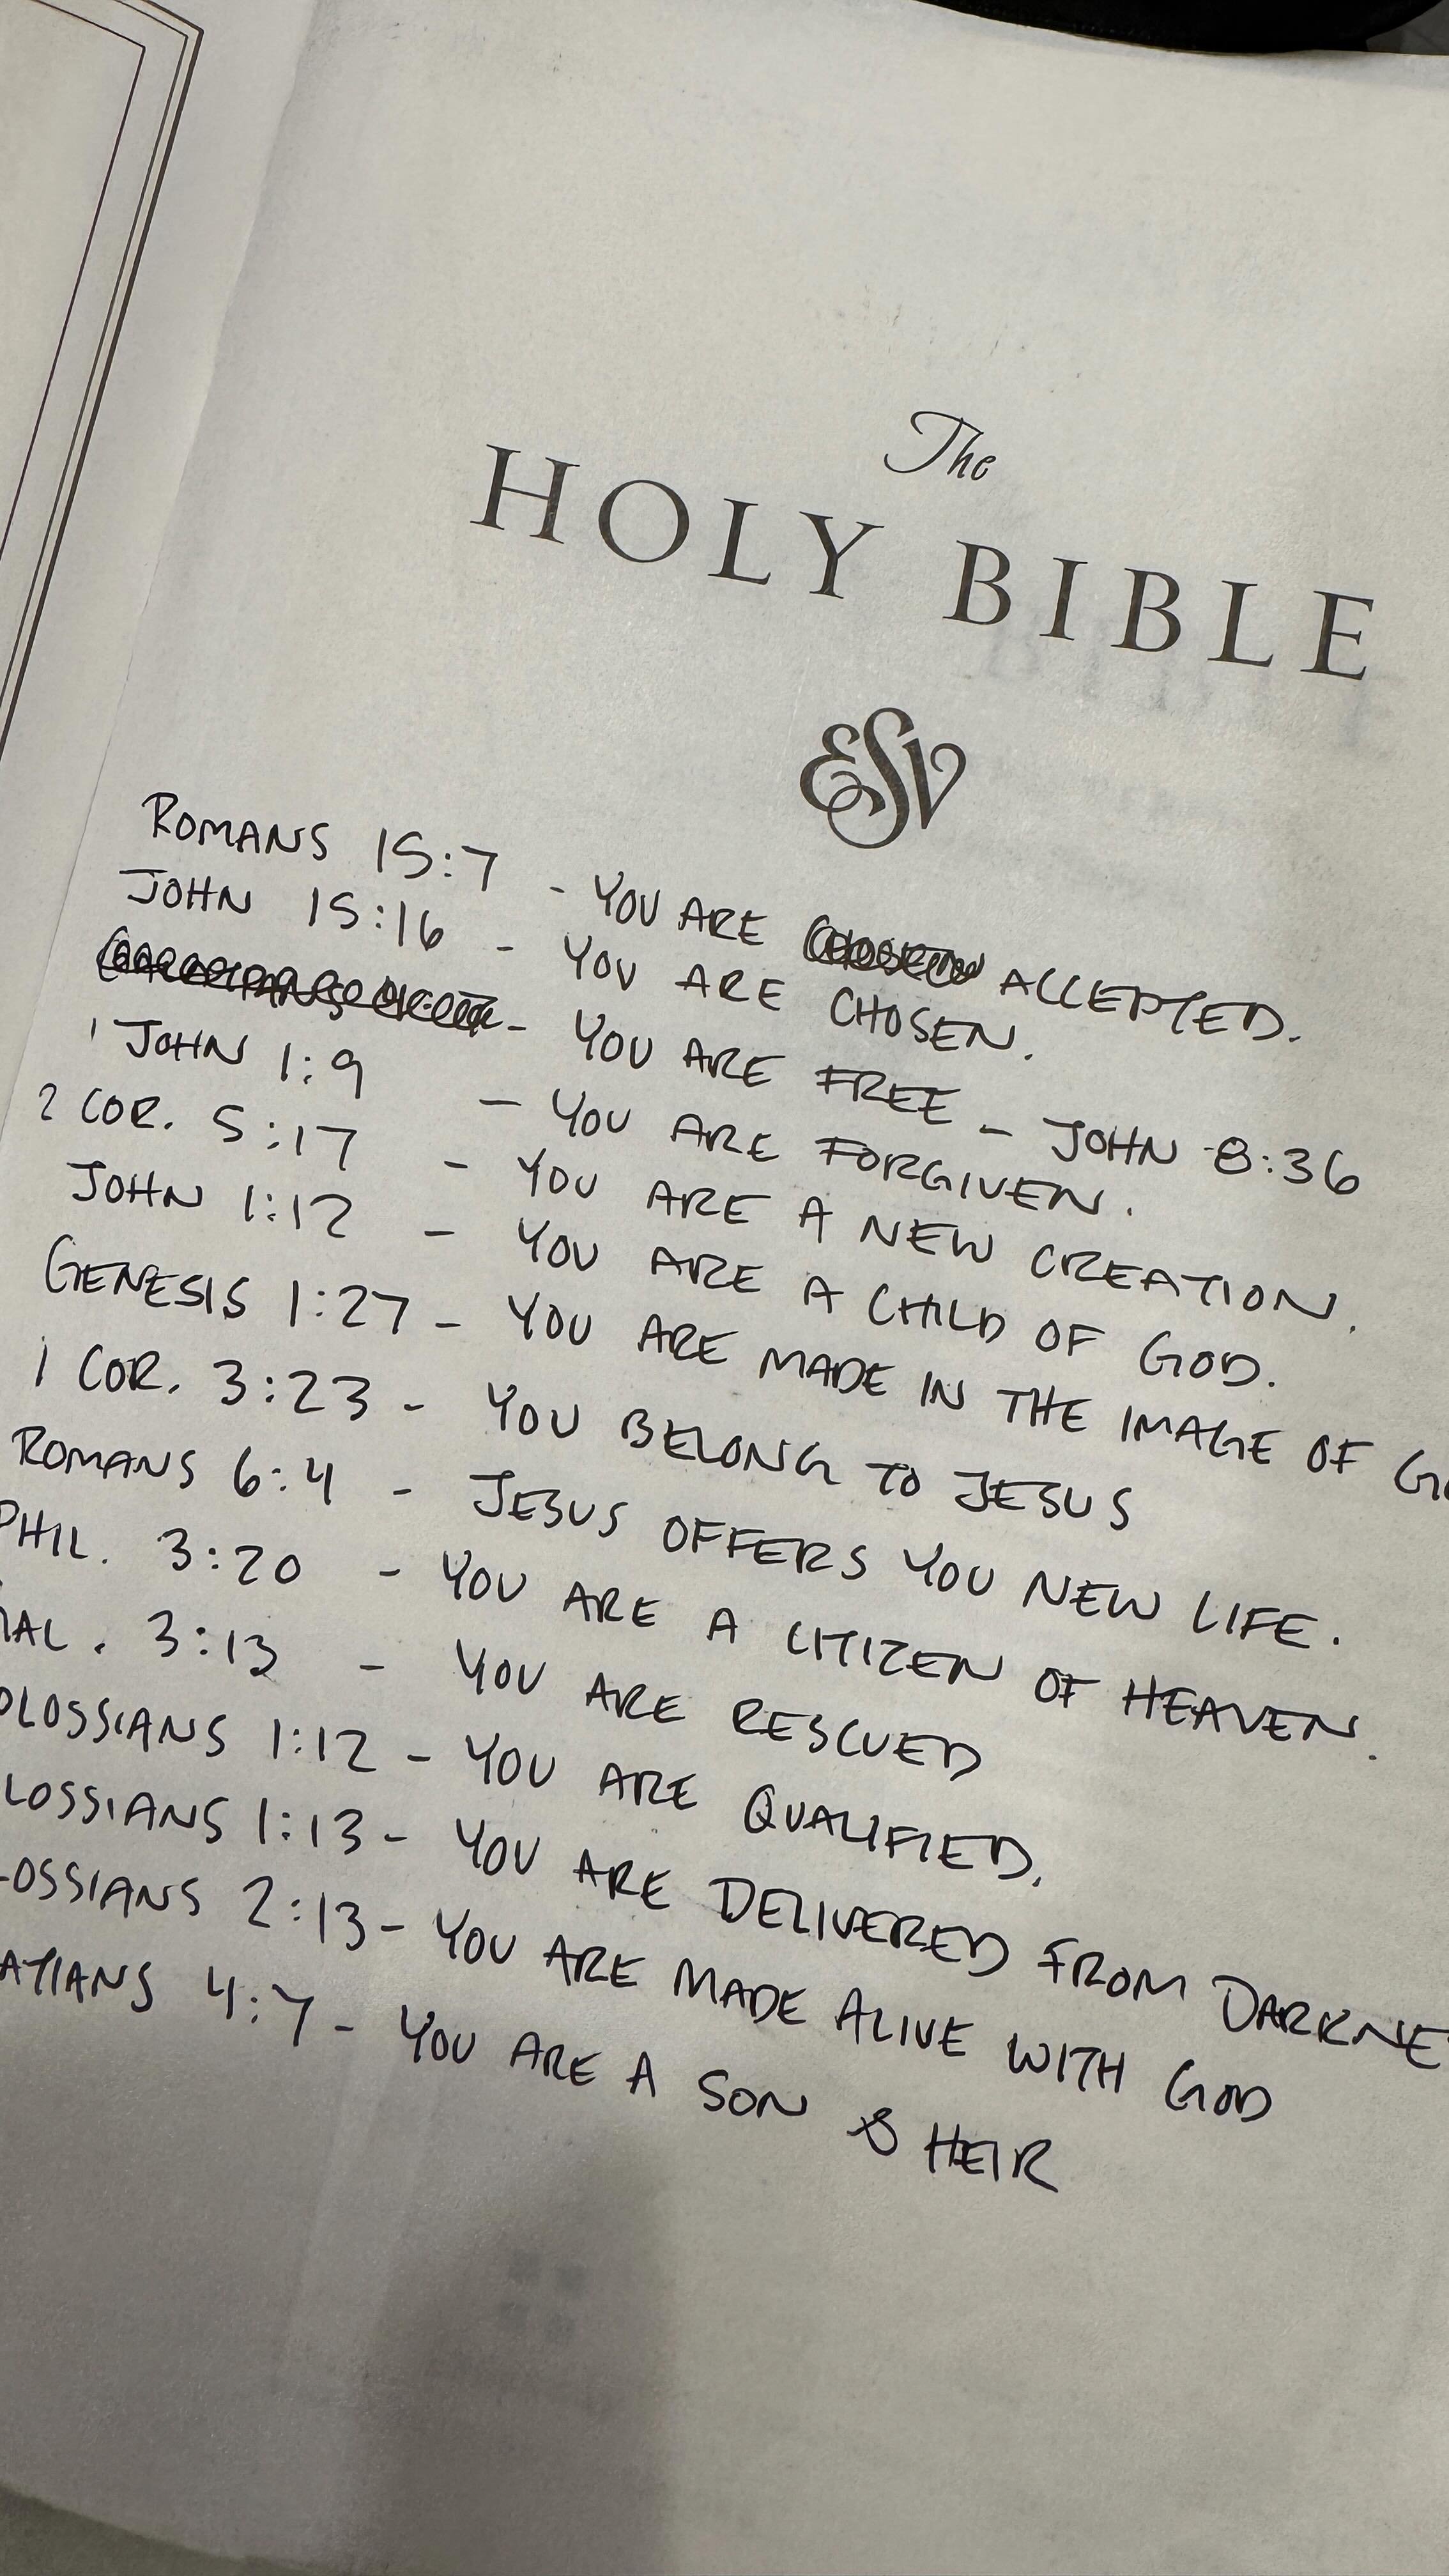 The
HOLY BIBLE
ESV
ROMANS 15:7 - YOU ARE ACCEPTED.
JOHN 15:16 - YOU ARE CHOSEN.
- YOU ARE FREE - JOHN 8:36
1 JOHN 1:9 - YOU ARE FORGIVEN.
2 COR. 5:17 - YOU ARE A NEW CREATION.
JOHN 1:12 - YOU ARE A CHILD OF GOD.
GENESIS 1:27 - YOU ARE MADE IN THE IMAGE OF G
1 COR. 3:23 - YOU BELONG TO JESUS
ROMANS 6:4 - JESUS OFFERS YOU NEW LIFE.
PHIL. 3:20 - YOU ARE A CITIZEN OF HEAVEN.
AL. 3:13 - YOU ARE RESCUED
OLOSSIANS 1:12 - YOU ARE QUALIFIED.
LOSSIANS 1:13 - YOU ARE DELIVERED FROM DARKNE
OSSIANS 2:13 - YOU ARE MADE ALIVE WITH GOD
ATIANS 4:7 - YOU ARE A SON & HEIR